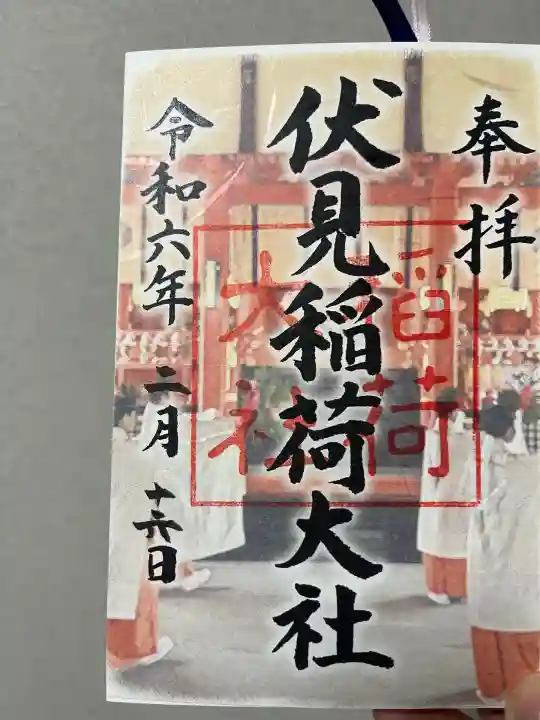 奉拝
伏見稲荷大社
稲荷
大社
令和六年 二月 十六日